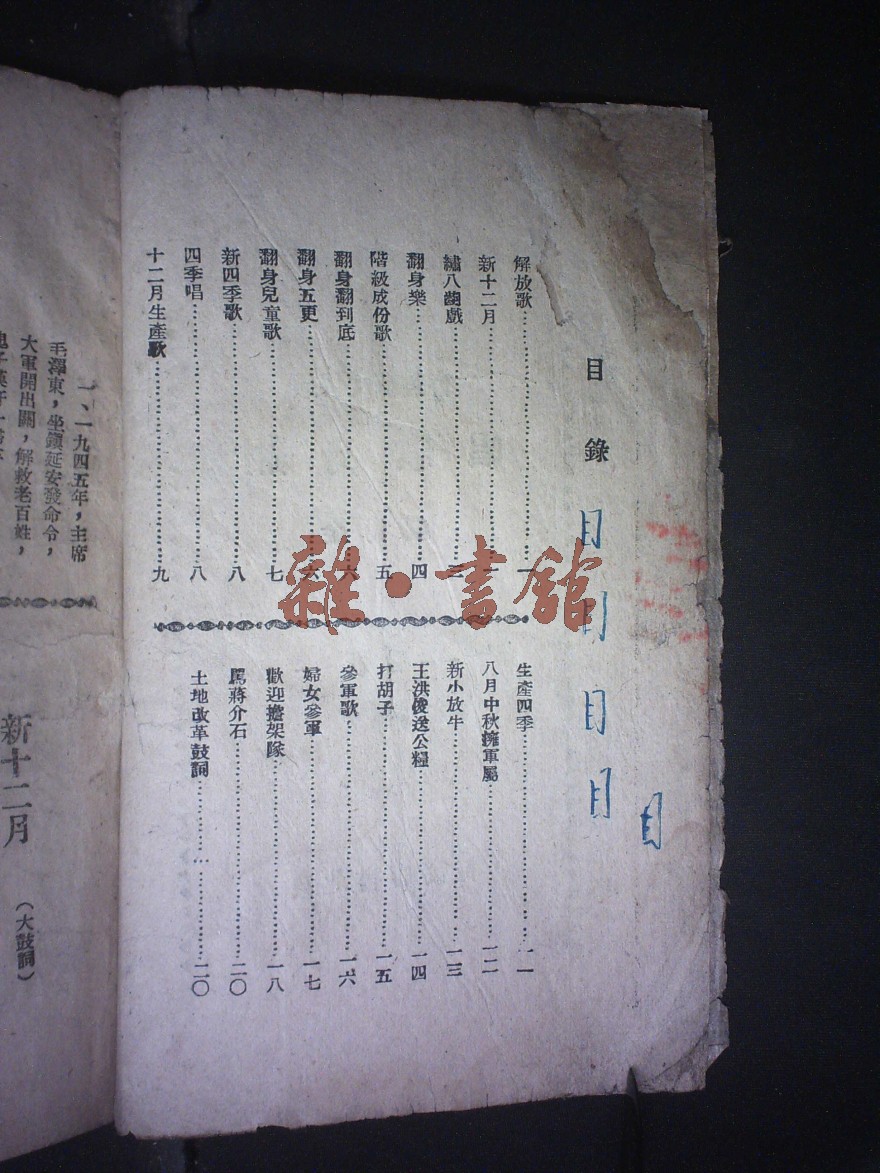 目錄
解放歌……一
新十二月……
繡八湖戲……三
翻身樂……四
階級成份歌……五
翻身翻到底……六
翻身五更……六
翻身兒童歌……七
新四季歌……八
四季唱……八
十二月生產歌……九
生產四季……一一
八月中秋擁軍屬……一二
新小放牛……一三
王洪俊送公糧……一四
打胡子……一五
參軍歌……一六
婦女參軍……一七
歡迎擔架隊……一八
罵蔣介石……二〇
土地改革鼓詞……二〇
目
目
目
目
目
雜·書館
一、一九四五年，主席
毛澤東，坐鎮延安發命令，
大軍開出關，解救老百姓，
新十二月
（大鼓詞）